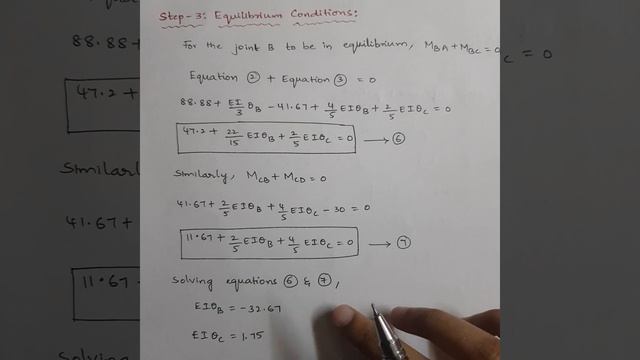 Step-3: Equilibrium Conditions:
For the joint B to be in equilibrium, M_BA + M_BC = 0
Equation ② + Equation ③ = 0
88.88 + EI/3 θ_B - 41.67 + 4/5 EIθ_B + 2/5 EIθ_C = 0
47.2 + 22/15 EIθ_B + 2/5 EIθ_C = 0 → ⑥
Similarly, M_CB + M_CD = 0
41.67 + 2/5 EIθ_B + 4/5 EIθ_C - 30 = 0
11.67 + 2/5 EIθ_B + 4/5 EIθ_C = 0 → ⑦
Solving equations ⑥ & ⑦,
EIθ_B = -32.67
EIθ_C = 1.75